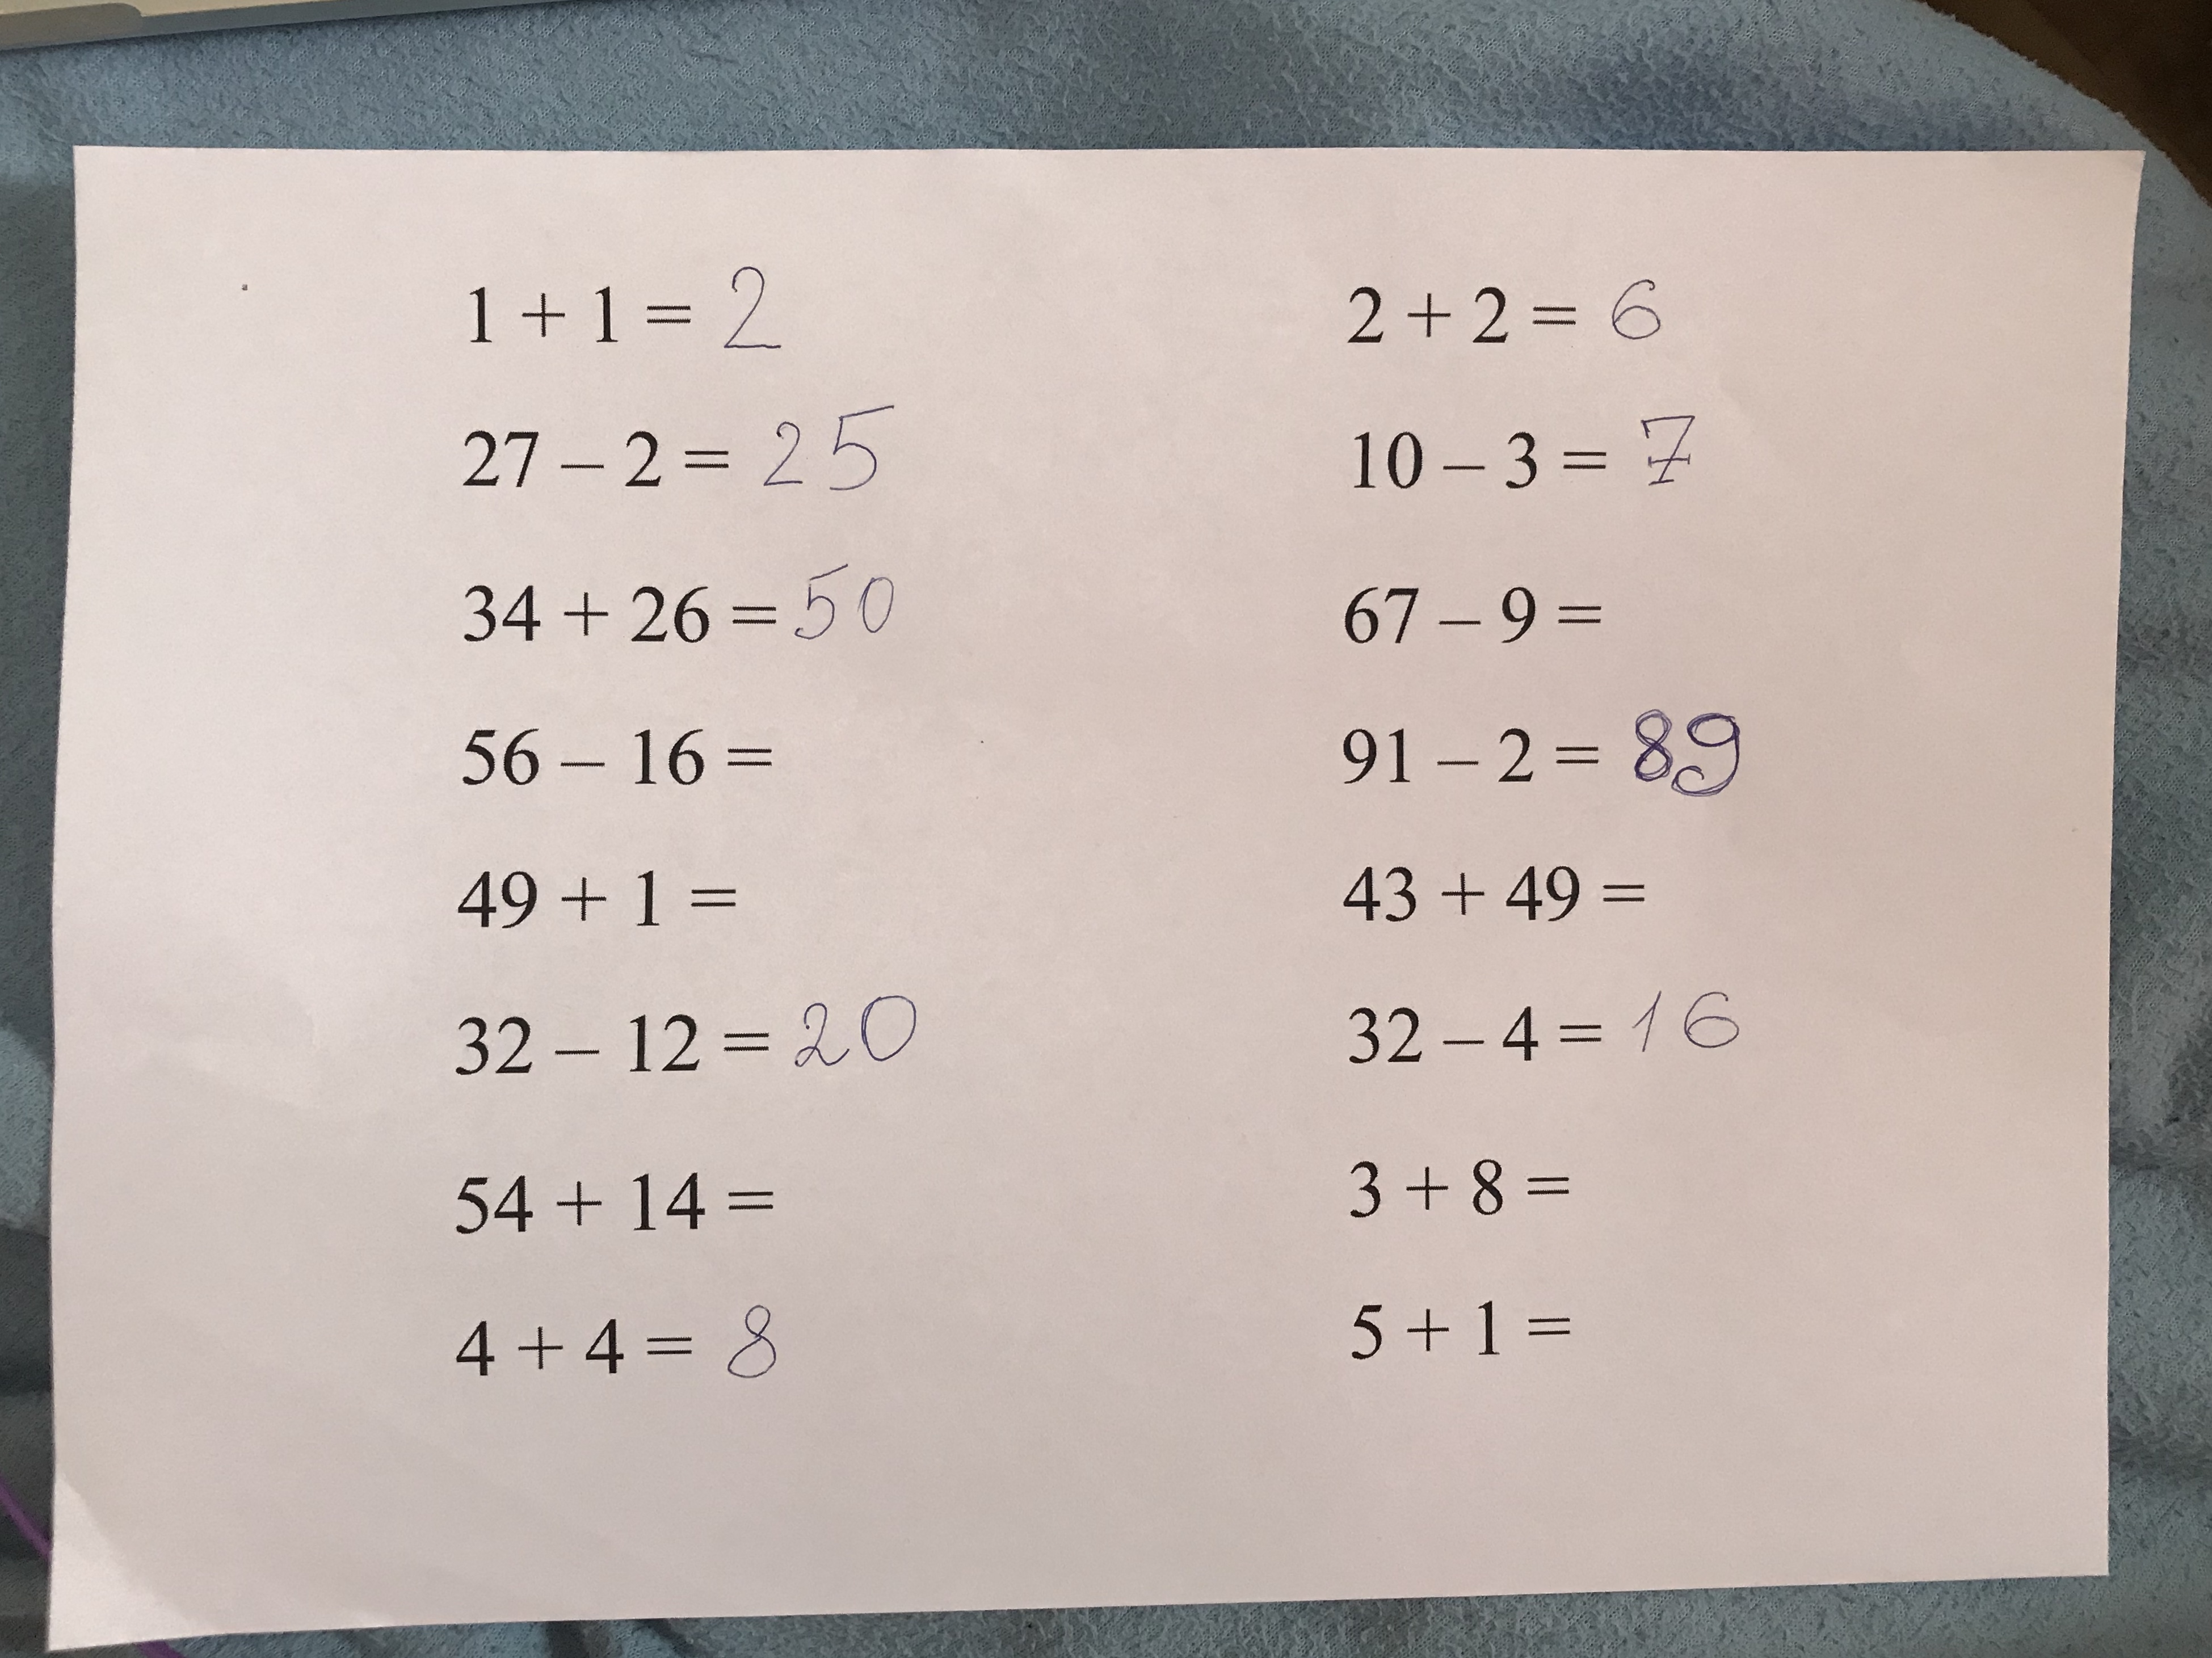 1 + 1 = 2
27 – 2 = 25
34 + 26 = 50
56 – 16 =
49 + 1 =
32 – 12 = 20
54 + 14 =
4 + 4 = 8
2 + 2 = 6
10 – 3 = 7
67 – 9 =
91 – 2 = 89
43 + 49 =
32 – 4 = 16
3 + 8 =
5 + 1 =